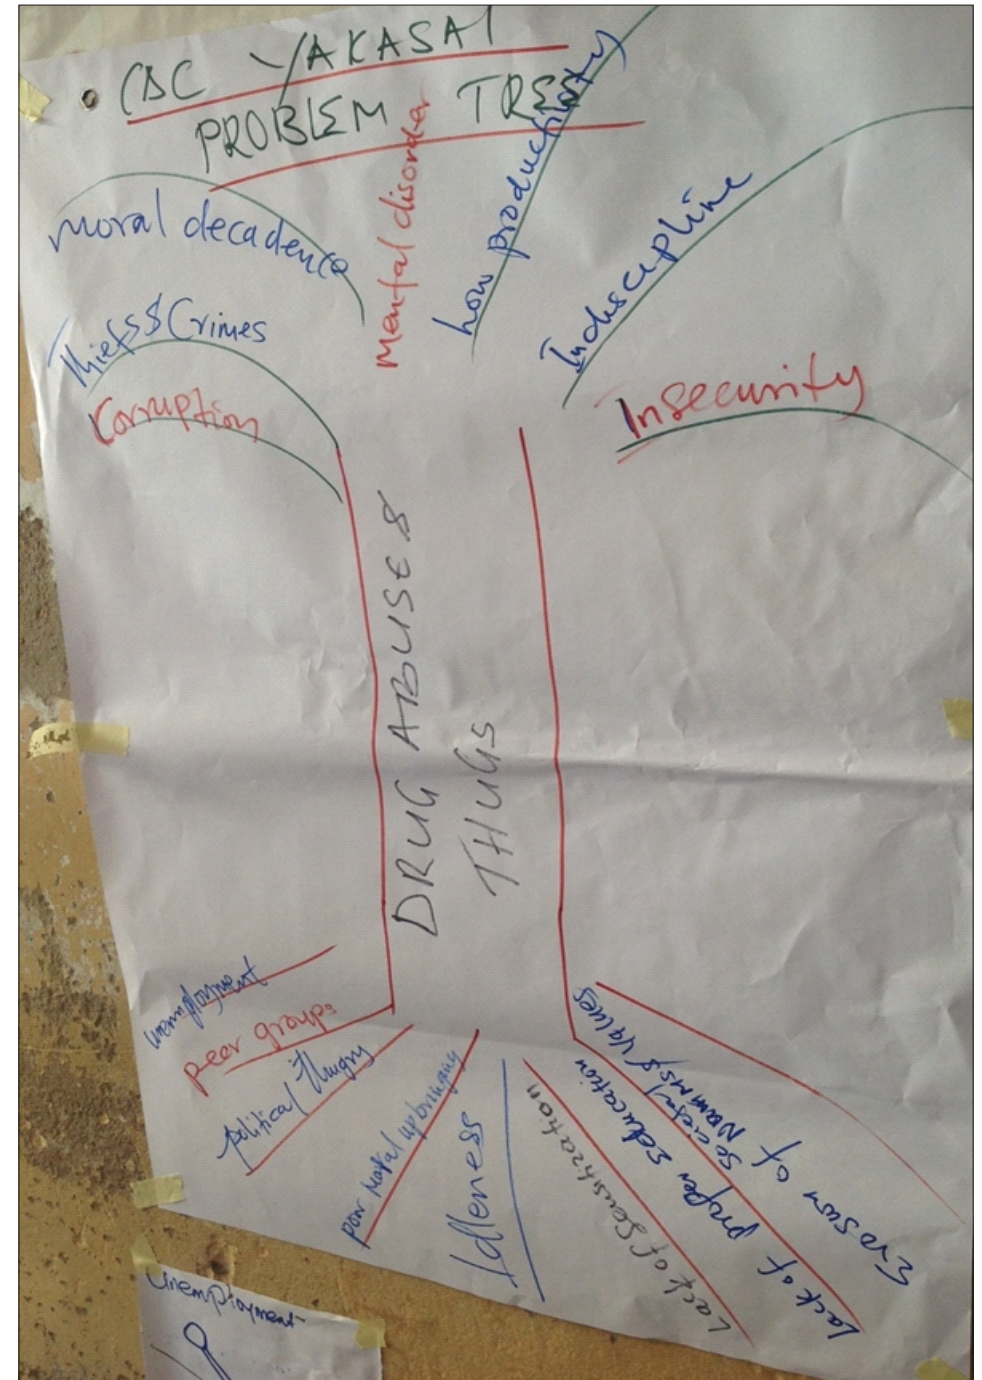 CDC YAKASAI
PROBLEM TREE
Moral decadence
Mental disorder
Low productivity
Indiscipline
Thiefs & Crimes
Corruption
Insecurity
DRUG ABUSE &
THUGS
unemployment
peer groups
political Thugry
poor Moral upbringing
Idleness
Lack of Sensitization
Lack of proper education
Erosion of societal
Norms & Values
Unemployment